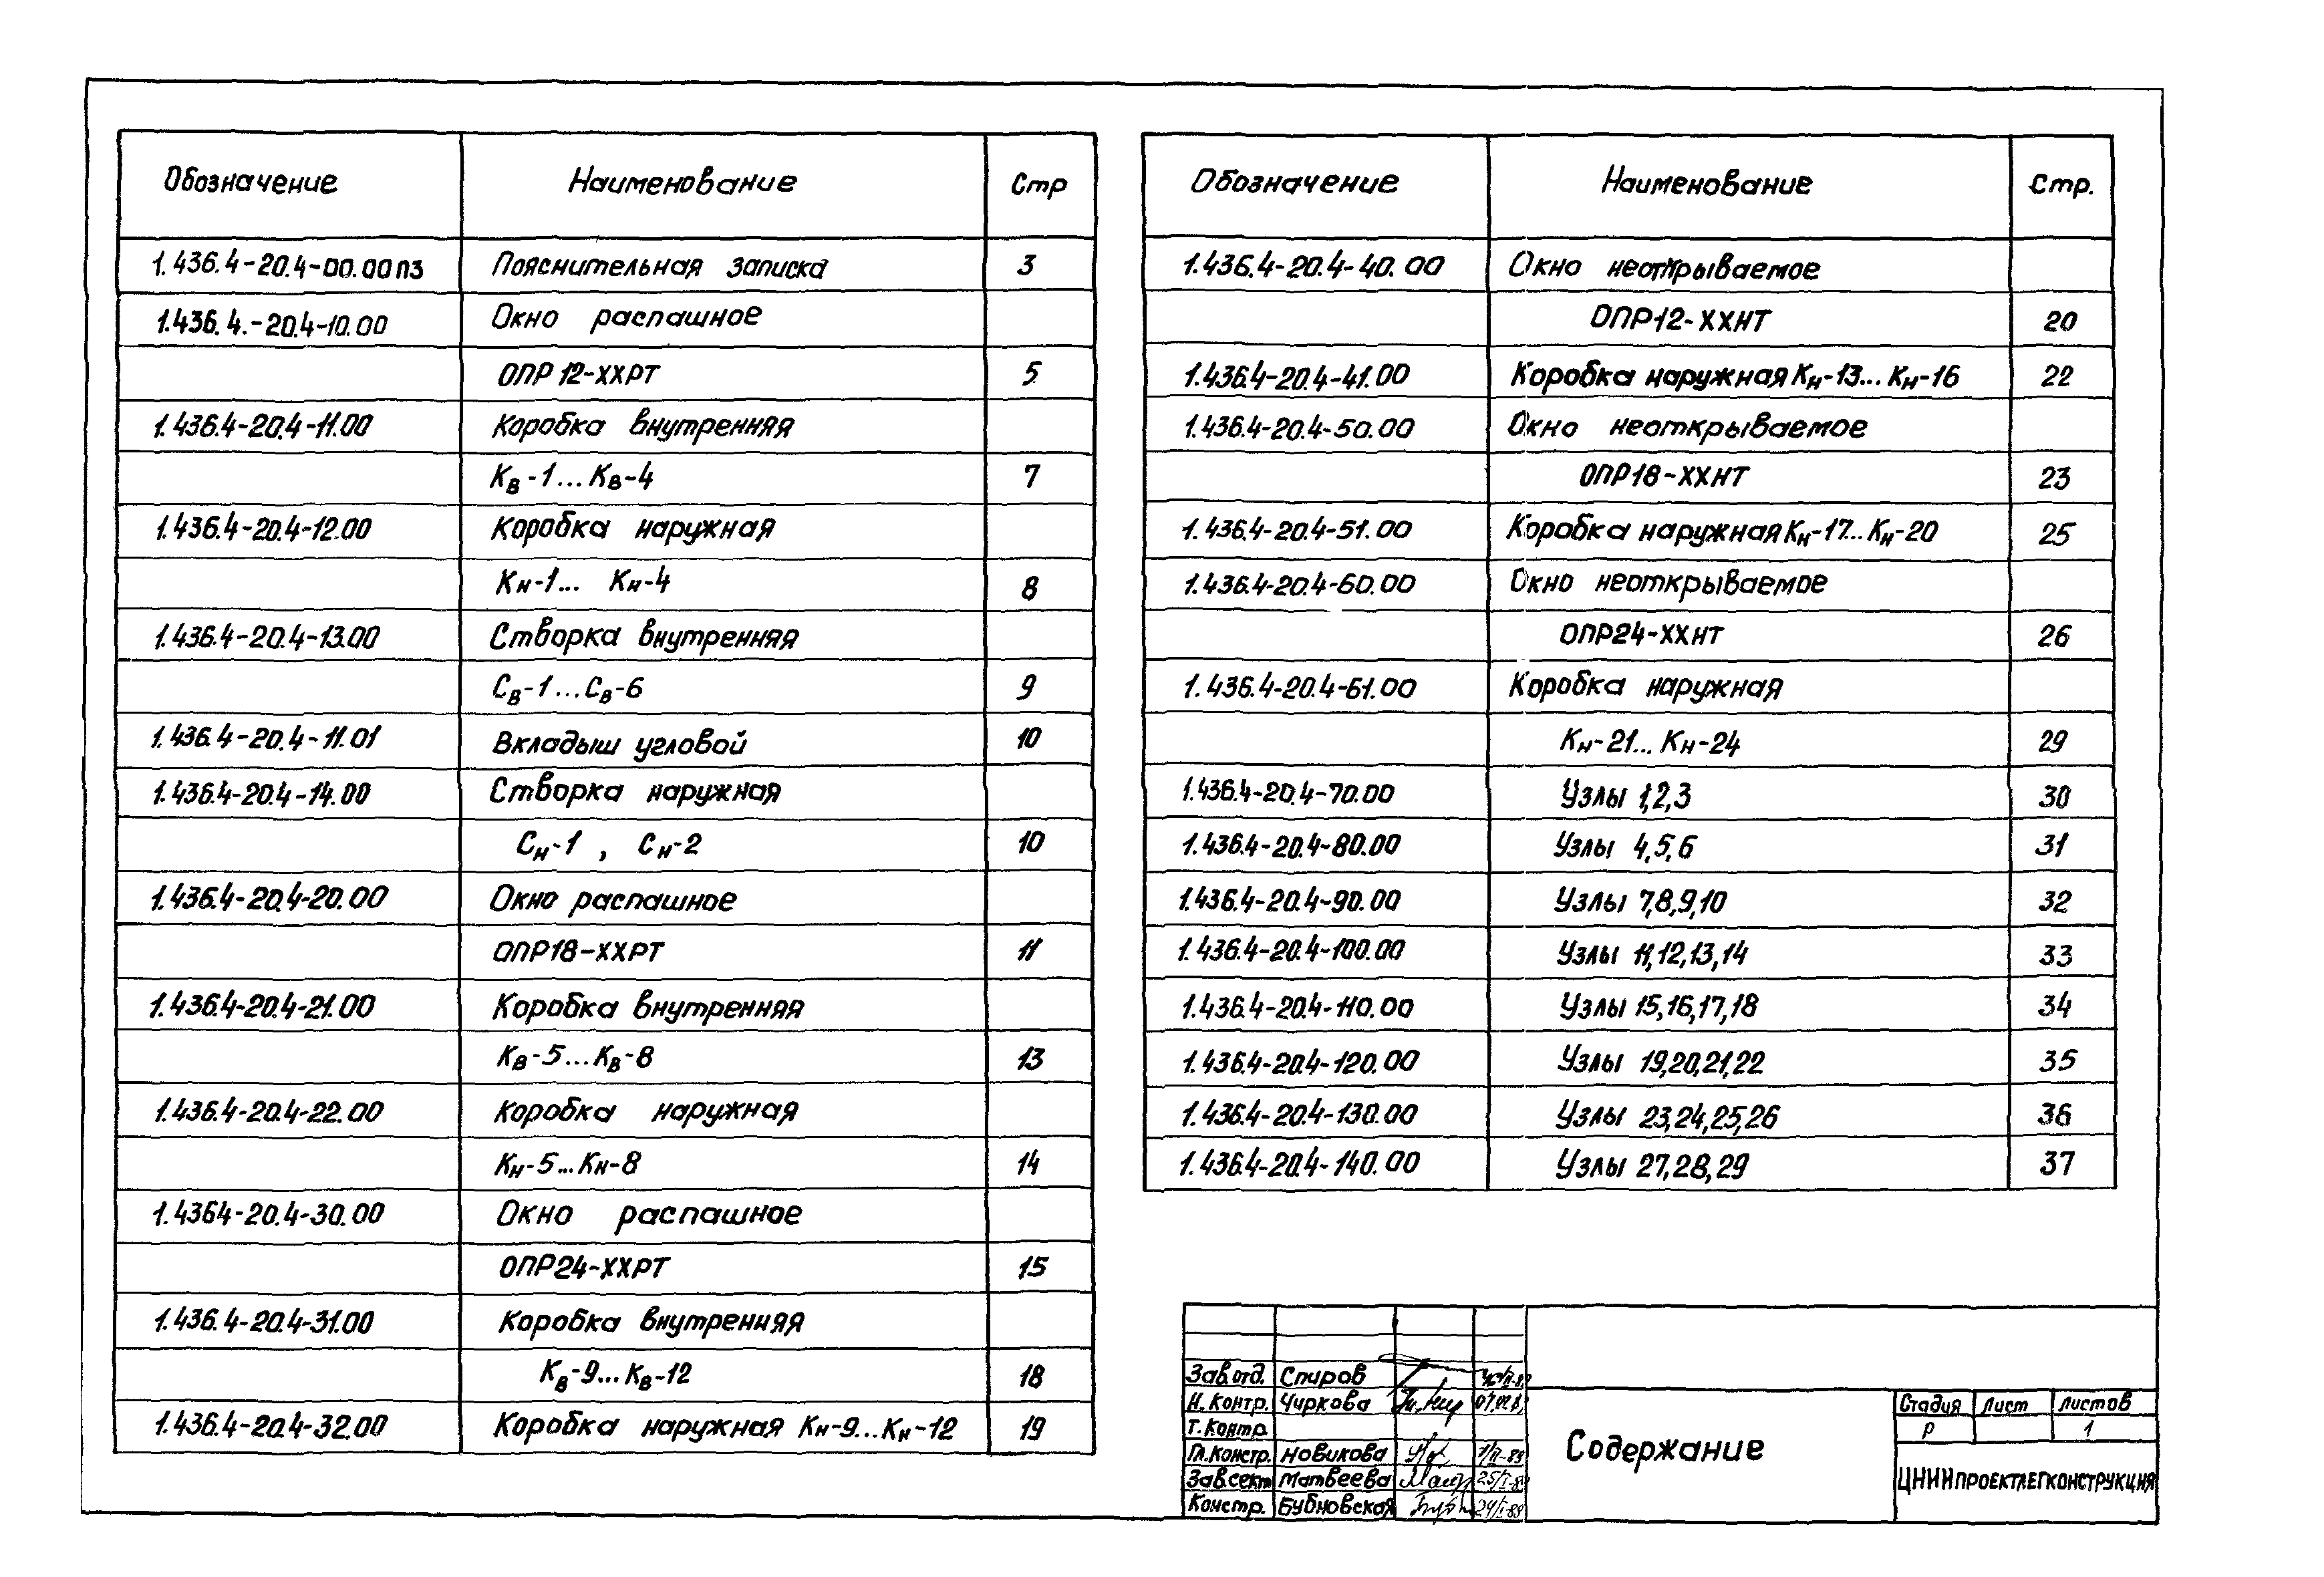 Обозначение Наименование Стр
1.436.4-20.4-00.00ПЗ Пояснительная записка 3
1.436.4.-20.4-10.00 Окно распашное
ОПР 12-ХХРТ 5
1.436.4-20.4-11.00 Коробка внутренняя
Кв-1...Кв-4 7
1.436.4-20.4-12.00 Коробка наружная
Кн-1... Кн-4 8
1.436.4-20.4-13.00 Створка внутренняя
Св-1...Св-6 9
1.436.4-20.4-11.01 Вкладыш угловой 10
1.436.4-20.4-14.00 Створка наружная
Сн-1 , Сн-2 10
1.436.4-20.4-20.00 Окно распашное
ОПР18-ХХРТ 11
1.436.4-20.4-21.00 Коробка внутренняя
Кв-5...Кв-8 13
1.436.4-20.4-22.00 Коробка наружная
Кн-5...Кн-8 14
1.4364-20.4-30.00 Окно распашное
ОПР24-ХХРТ 15
1.436.4-20.4-31.00 Коробка внутренняя
Кв-9...Кв-12 18
1.436.4-20.4-32.00 Коробка наружная Кн-9...Кн-12 19
Обозначение Наименование Стр.
1.436.4-20.4-40.00 Окно неоткрываемое
ОПР12-ХХНТ 20
1.436.4-20.4-41.00 Коробка наружная Кн-13...Кн-16 22
1.436.4-20.4-50.00 Окно неоткрываемое
ОПР18-ХХНТ 23
1.436.4-20.4-51.00 Коробка наружная Кн-17...Кн-20 25
1.436.4-20.4-60.00 Окно неоткрываемое
ОПР24-ХХНТ 26
1.436.4-20.4-61.00 Коробка наружная
Кн-21...Кн-24 29
1.436.4-20.4-70.00 Узлы 1,2,3 30
1.436.4-20.4-80.00 Узлы 4,5,6 31
1.436.4-20.4-90.00 Узлы 7,8,9,10 32
1.436.4-20.4-100.00 Узлы 11,12,13,14 33
1.436.4-20.4-110.00 Узлы 15,16,17,18 34
1.436.4-20.4-120.00 Узлы 19,20,21,22 35
1.436.4-20.4-130.00 Узлы 23,24,25,26 36
1.436.4-20.4-140.00 Узлы 27,28,29 37
Зав.отд. Спиров
Н.Контр. Чиркова
Т.Контр.
Гл.Констр. Новикова
Зав.сект Матвеева
Констр. Бубновская
Содержание
Стадия Лист Листов
Р 1
ЦНИИПРОЕКТЛЕГКОНСТРУКЦИЯ